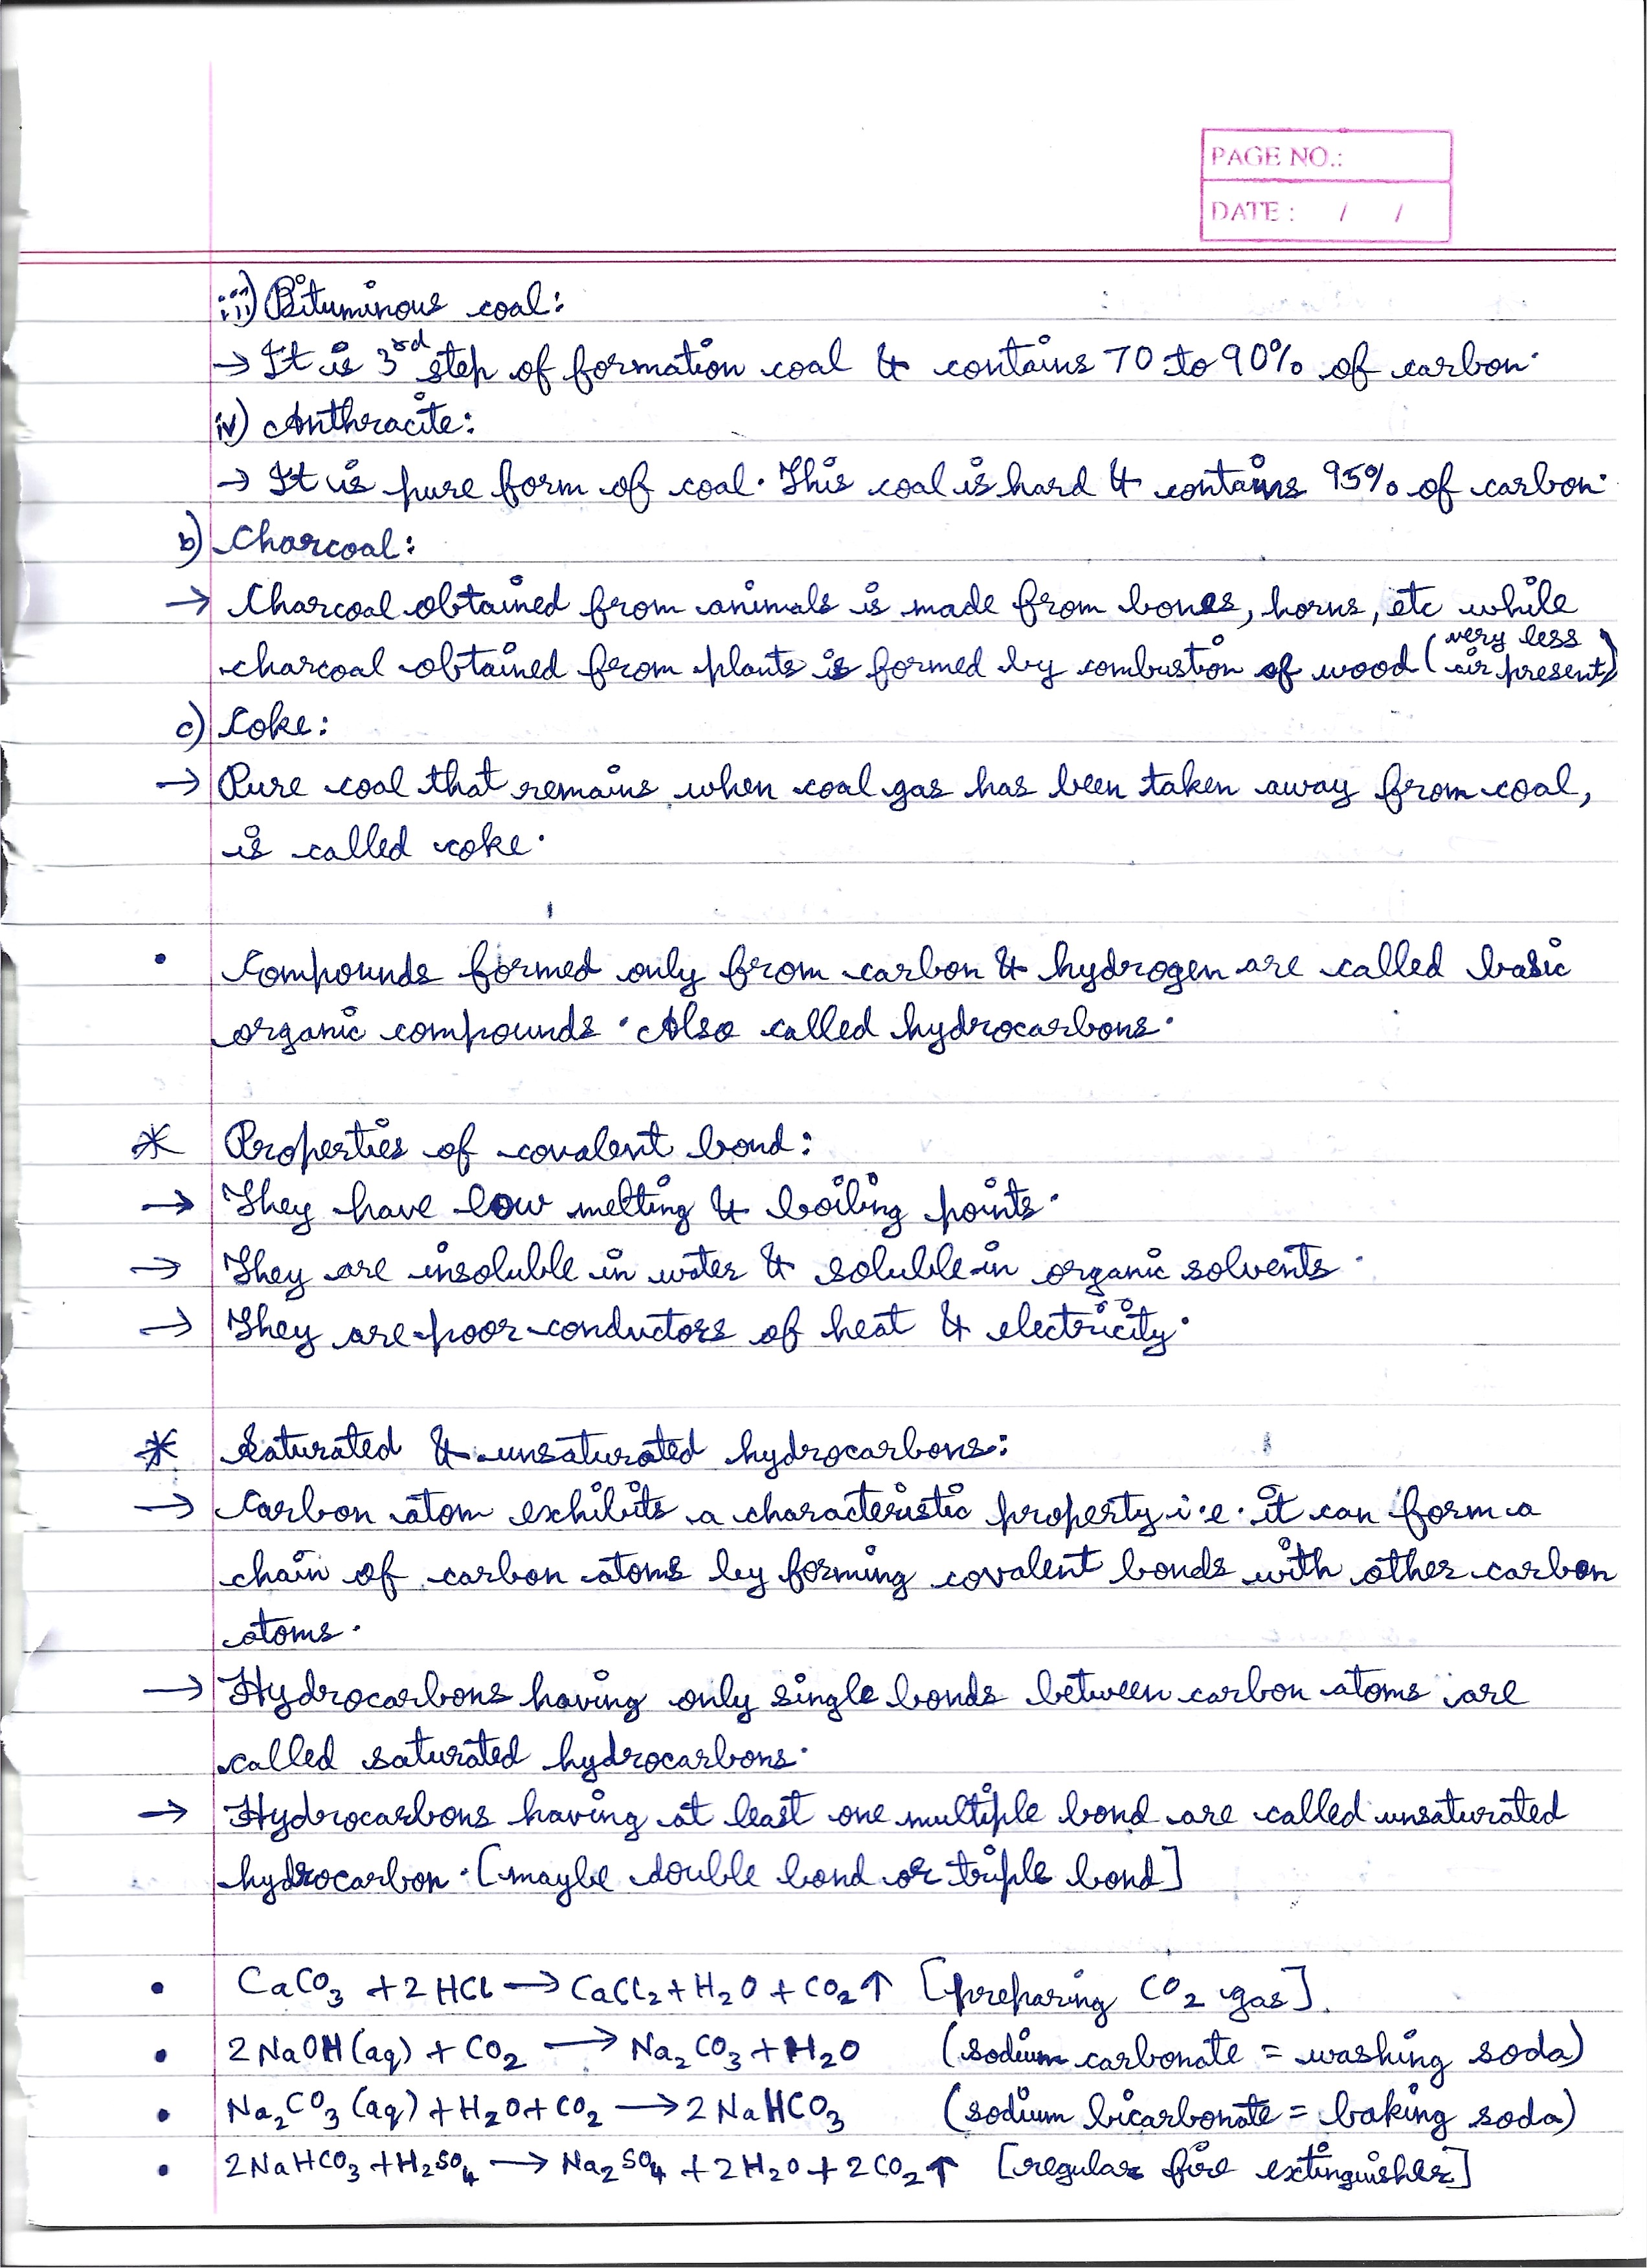 PAGE NO.:
DATE : / /
iii) Bituminous coal:
→ It is 3rd step of formation coal & contains 70 to 90% of carbon.
iv) Anthracite:
→ It is pure form of coal. This coal is hard & contains 95% of carbon.
b) Charcoal:
→ Charcoal obtained from animals is made from bones, horns, etc while
charcoal obtained from plants is formed by combustion of wood (very less air present)
c) Coke:
→ Pure coal that remains when coal gas has been taken away from coal,
is called coke.
• Compounds formed only from carbon & hydrogen are called basic
organic compounds. Also called hydrocarbons.
* Properties of covalent bond:
→ They have low melting & boiling points.
→ They are insoluble in water & soluble in organic solvents.
→ They are poor conductors of heat & electricity.
* Saturated & unsaturated hydrocarbons:
→ Carbon atom exhibits a characteristic property i.e. it can form a
chain of carbon atoms by forming covalent bonds with other carbon
atoms.
→ Hydrocarbons having only single bonds between carbon atoms are
called saturated hydrocarbons.
→ Hydrocarbons having at least one multiple bond are called unsaturated
hydrocarbon. [maybe double bond or triple bond]
• CaCO₃ + 2HCl → CaCl₂ + H₂O + CO₂↑ [preparing CO₂ gas].
• 2NaOH(aq) + CO₂ → Na₂CO₃ + H₂O (sodium carbonate = washing soda)
• Na₂CO₃(aq) + H₂O + CO₂ → 2NaHCO₃ (sodium bicarbonate = baking soda)
• 2NaHCO₃ + H₂SO₄ → Na₂SO₄ + 2H₂O + 2CO₂↑ [regular fire extinguisher]